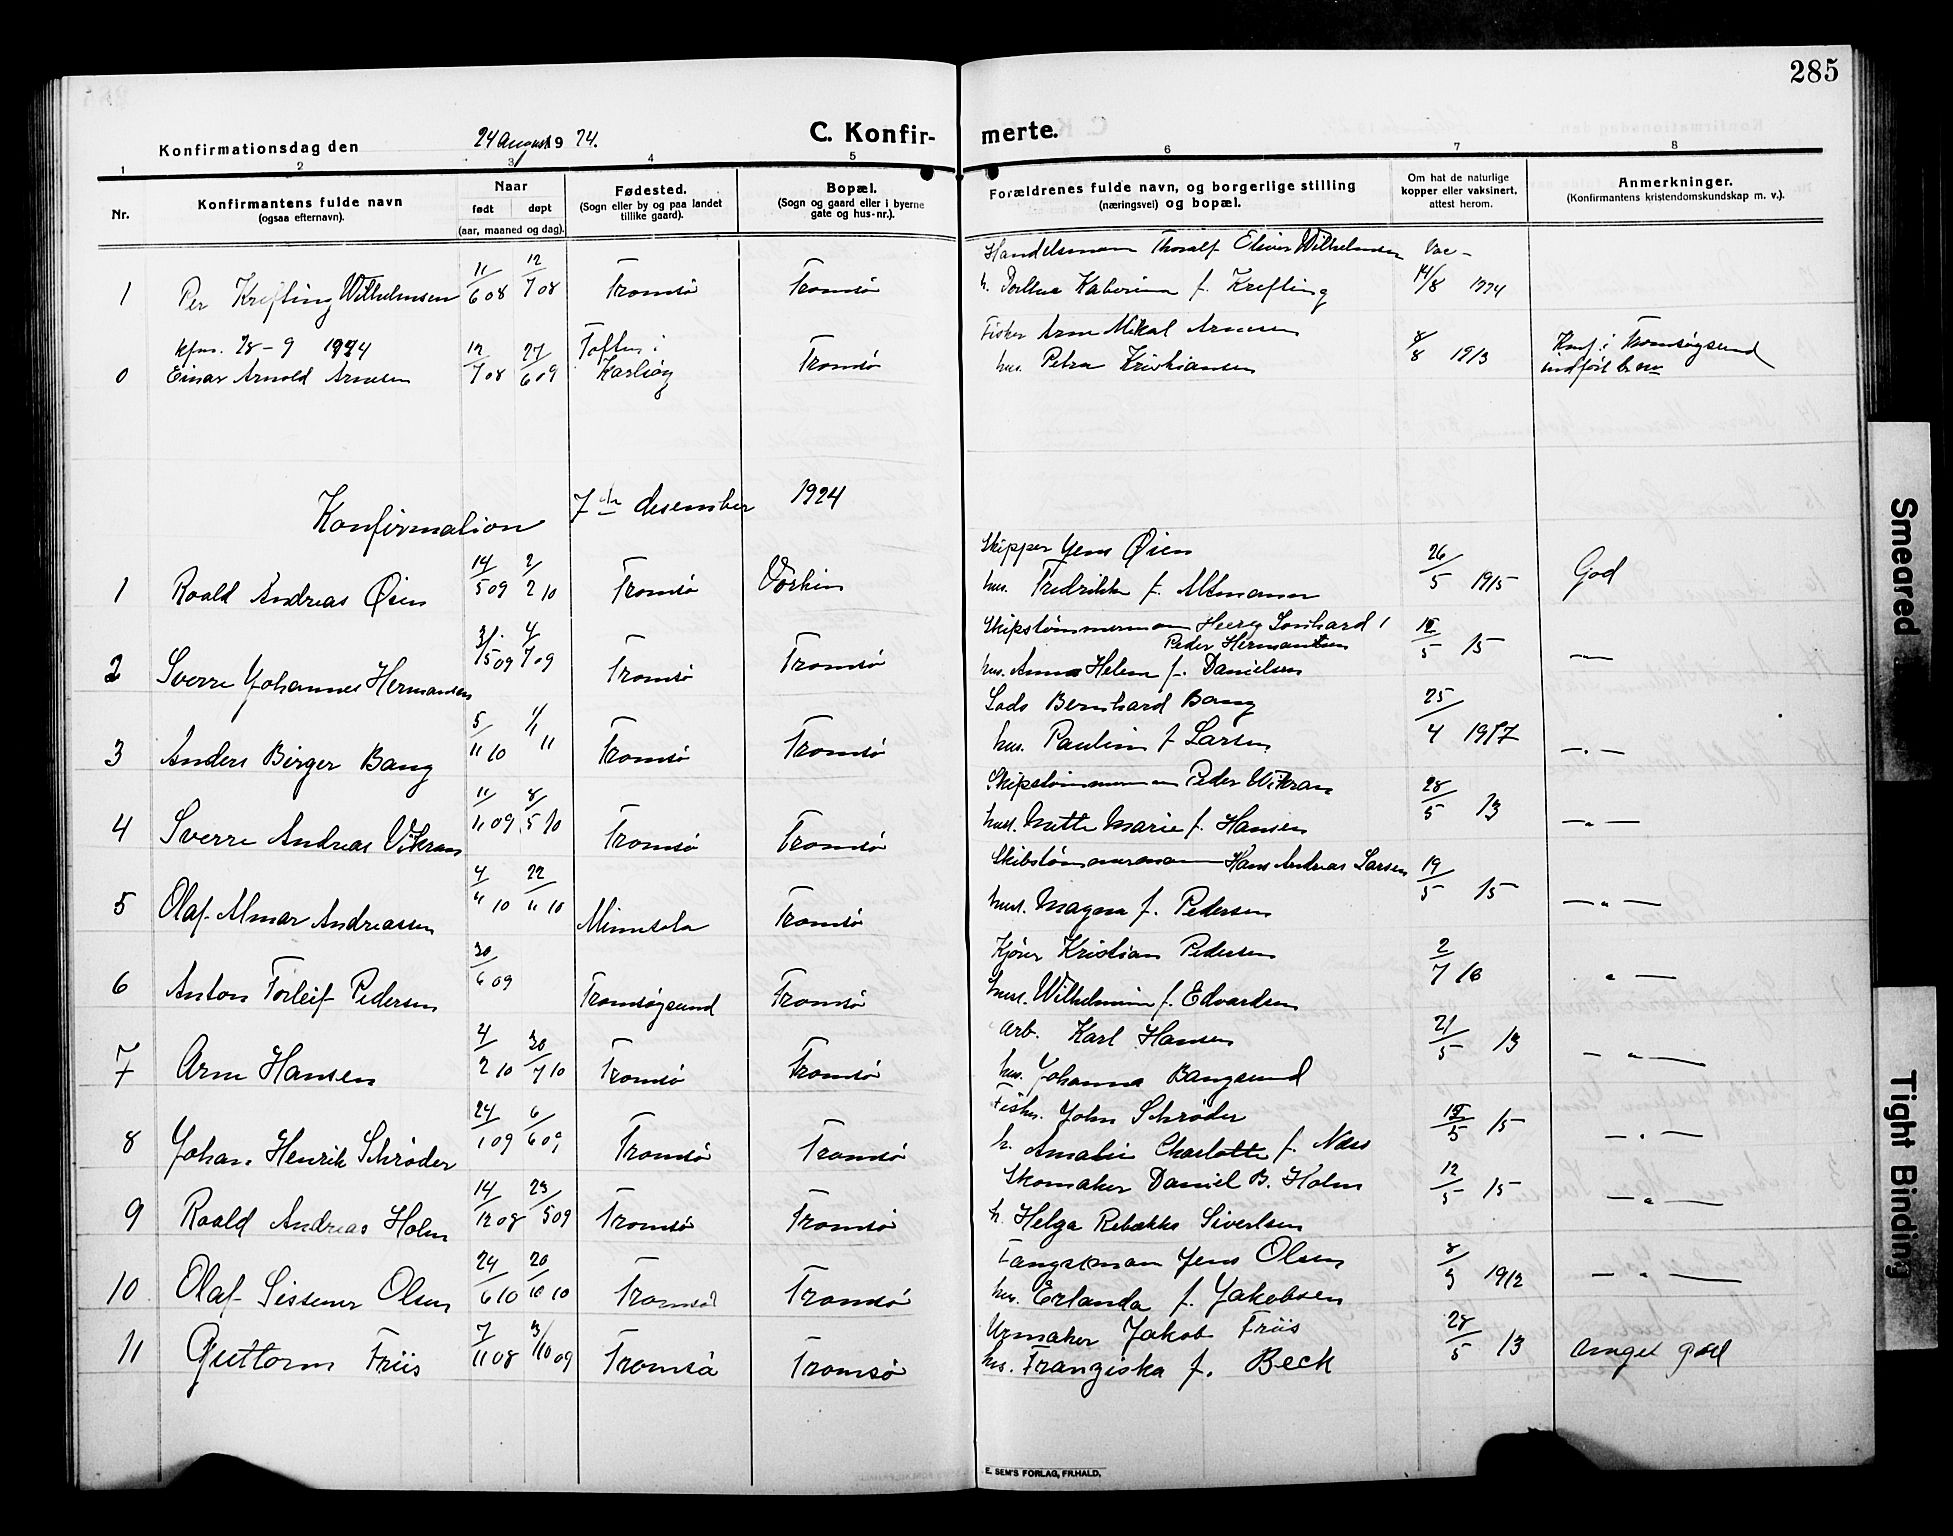 285
Konfirmationsdag den 24 August 1924.
C. Konfir- merte.
1 2 3 4 5 6 7 8
Nr.
Konfirmantens fulde navn
(ogsaa efternavn).
Naar
født døpt
(aar, maaned og dag).
Fødested.
(Sogn eller by og paa landet
tillike gaard).
Bopæl.
(Sogn og gaard eller i byerne
gate og hus-nr.).
Forældrenes fulde navn, og borgerlige stilling
(næringsvei) og bopæl.
Om hat de naturlige
kopper eller vaksinert,
attest herom.
Anmerkninger.
(Konfirmantens kristendomskundskap m. v.).
Handelsmann Thoralf Wilhelmsen Vac -
1 Per Krefting Wilhelmsen 11/6 08 12/7 08 Tromsø Tromsø h. Katerina f. Krefting 14/8 1924
kfm. 28-9 1924
Fisker Arne Mikal Arnesen
0 Einar Arnold Arnesen 12/7 08 27/6 09 Karlsøy Tromsø hus. Petra Kristiansen 8/8 1913 Knf. i Tromsøysund
Konfirmation 7de desember 1924
Skipper Jens Øien
1 Roald Andreas Øien 14/5 09 2/2 10 Tromsø hus. Fredrikke f. Altmann 26/5 1915 God
Skipstømmermann
Peder Hermansen
2 Sverre Johannes Hermansen 31/5 09 4/7 09 Tromsø Tromsø hus. Anna Helene f. Danielsen 15 -"-
Lods Bernhard Bang
3 Anders Birger Bang 5/11 10 1/1 11 Tromsø Tromsø hus. Pauline f. Larsen 25/4 1917 -"-
Skipstømmermann Peder Vikran
4 Sverre Andreas Vikran 11/11 09 8/5 10 Tromsø Tromsø hust. Mette Marie f. Hansen 28/5 13 -"-
Skibstømmermann Hans Andreas Larsen
5 Olaf Almar Andreassen 4/11 10 22/11 10 Minnesota Tromsø hust. Magna f. Pedersen 19/5 15 -"-
Kjører Kristian Pedersen
6 Anton Torleif Pedersen 30/6 09 Tromsøysund Tromsø hust. Wilhelmine f. Edvardsen 2/7 "-
Arb. Karl Hansen
7 Arne Hansen 4/2 10 30/7 10 Tromsø Tromsø hus. Johanna Bangsund 21/5 13 -"-
Fisker. John Schrøder
8 Johan Henrik Schrøder 24/1 09 6/6 09 Tromsø Tromsø h. Amalie Charlotte f. Næss 15 -"-
Skomaker Daniel B. Holm
9 Roald Andreas Holm 14/12 08 23/5 09 Tromsø Tromsø h. Helga Rebekka Sivertsen 12/5 15 -"-
Fangstman Jens Olsen
10 Olaf Sissener Olsen 24/6 10 20/10 10 Tromsø Tromsø hus. Erlanda f. Jakobsen 8/9 1912 -"-
Urmaker Jakob Friis
11 Guttorm Friis 7/11 08 3/10 09 Tromsø Tromsø hus. Franziska f. Beck 28/5 13 Meget god
E. SEM'S FORLAG, FR.HALD.
Smeared
Tight Binding